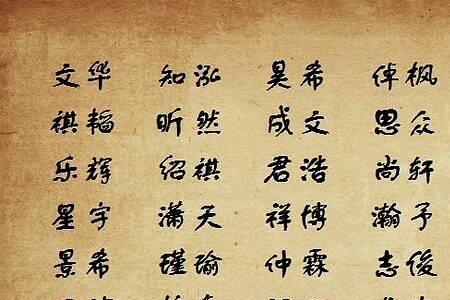 文华 知泓 昊希 倬枫
祺韬 昕然 成文 思众
乐辉 绍祺 君浩 尚轩
星宇 潇天 祥博 瀚予
景希 瑾瑜 仲霖 志俊